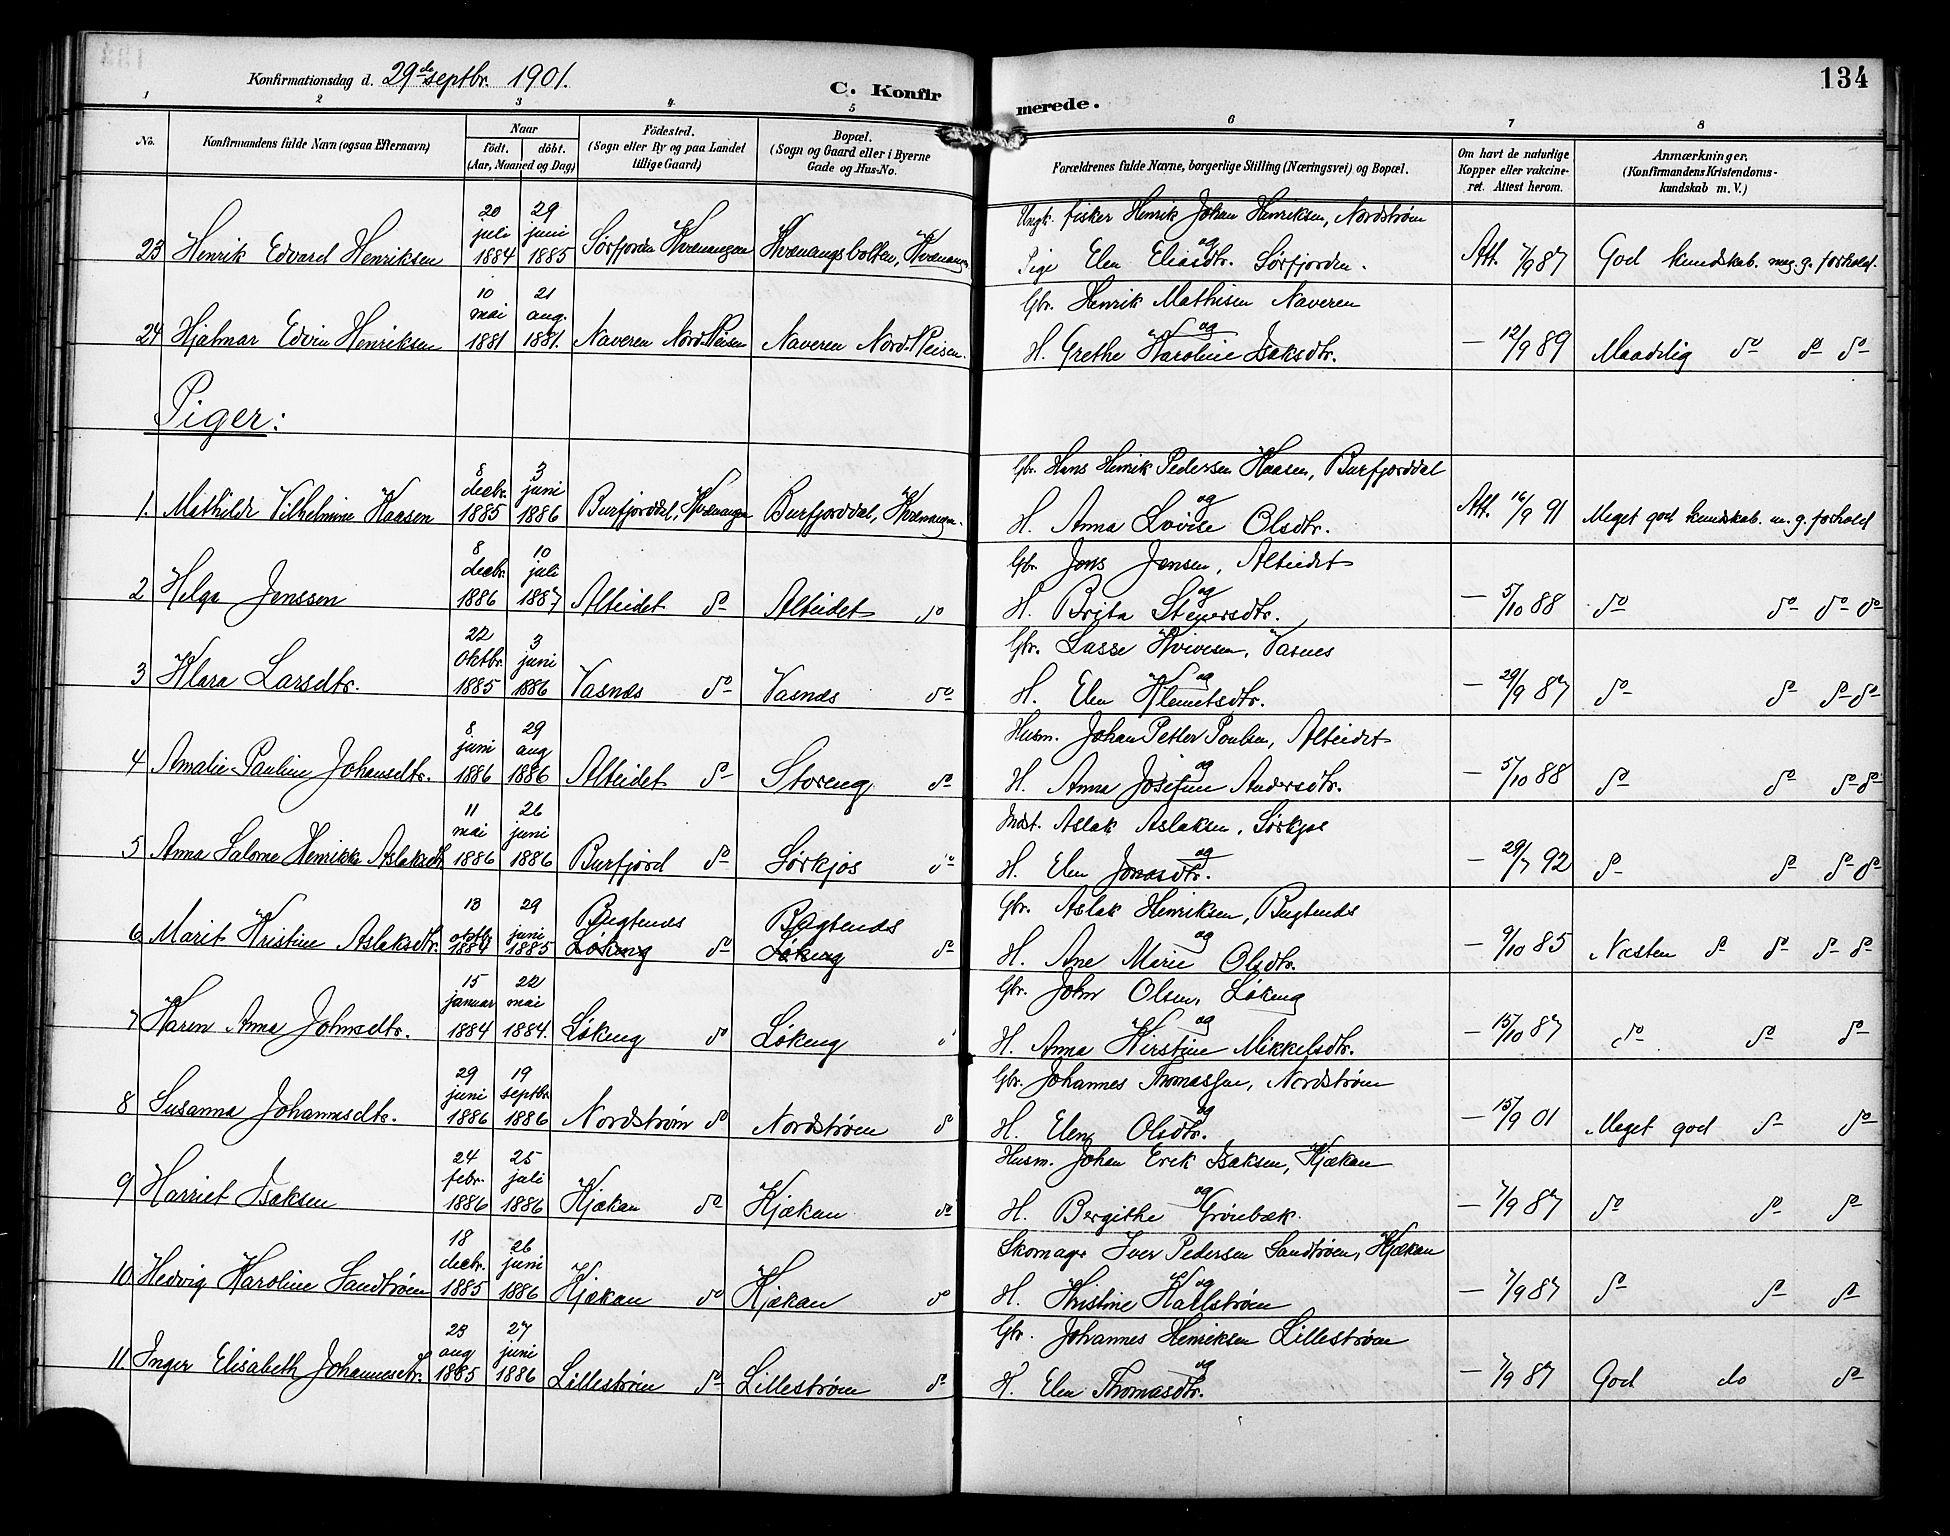 134
Konfirmationsdag d. 29de septbr. 1901.
C. Konfirmerede.
1 2 3 4 5 6 7 8
No.
Konfirmandens fulde Navn (ogsaa Efternavn)
Naar
født. døbt.
(Aar, Maaned og Dag)
Fødested.
(Sogn eller By og paa Landet
tillige Gaard)
Bopæl.
(Sogn og Gaard eller i Byerne
Gade og Hus-No.
Forældrenes fulde Navne, borgerlige Stilling (Næringsvei) og Bopæl.
Om havt de naturlige
Kopper eller vakcine-
ret. Attest herom.
Anmærkninger.
(Konfirmandens Kristendoms-
kundskab m. V.)
23 Henrik Edvard Henriksen 20 juli 1884 29 juni 1885 Sørfjorden Kvænangen Kvænangsbotten, Kvænangen
Ungk. fisker Henrik Johan Henriksen, Nordstrøm
og
Pige Elen Eliasdtr. Sørfjorden. Att. 7/9 87 God kundskab. meg. g. forhold.
24 Hjalmar Edvin Henriksen 10 mai 1881 21 aug. 1881. Naveren Nord-Reisen Naveren Nord-Reisen.
Gbr. Henrik Mathisen Naveren
og
H. Grethe Karoline Isaksdtr. — 12/9 89 Maadelig do do do
Piger:
1. Mathilde Vilhelmine Haasen 8 decbr. 1885 3 juni 1886 Burfjorddal, Kvænangen Burfjorddal, Kvænangen.
Gbr. Hans Henrik Pedersen Haasen, Burfjorddal
og
H. Anna Lovise Olsdtr. Att. 16/9 91 Meget god kundskab. m. g. forhold
2 Helga Jenssen 8 decbr. 1886 10 juli 1887 Alteidet do Alteidet do
Gbr. Jens Jensen, Alteidet
og
H. Brita Steiersdtr. — 5/10 88 do do do do
3 Klara Larsdtr. 22 oktbr. 1885 3 juni 1886 Vasnes do Vasnes do
Gbr. Lasse Kvivesen, Vasnes
og
H. Elen Klemetsdtr. — 29/9 87 do do do do
4 Amalie Pauline Johansdtr. 8 juni 1886 29 aug 1886 Alteidet do Storeng do
Husm. Johan Petter Poulsen, Alteidet
og
H. Anna Josefine Andersdtr. — 5/10 88 do do do do
5 Anna Salome Henrikke Aslaksdtr 11 mai 1886 26 juni 1886 Burfjord do Sørkjos do
Indst. Aslak Aslaksen, Sørkjos
og
H. Elen Jonasdtr. — 29/7 92 do do do do
6 Marit Kristine Aslaksdtr. 13 oktbr 1884 29 juni 1885 Bugtenes Løkeng do Bugtenes Løkeng do
Gbr. Aslak Henriksen, Bugtenes
og
H. Ane Marie Olsdtr. — 9/10 85 Næsten do do do do
7 Karen Anna Johnsdtr. 15 januar 1884 22 mai 1884. Løkeng do Løkeng do
Gbr. John Olsen, Løkeng
og
H. Anna Kirstine Mikkelsdtr. — 15/10 87 do do do
8 Susanna Johannesdtr. 29 juni 1886 19 septbr. 1886 Nordstrøm do Nordstrøm do
Gbr. Johannes Thomassen, Nordstrøm
og
H. Elen Olsdtr. — 15/9 01 Meget god do do
9 Harriet Isaksen 24 febr. 1886 25 juli 1886 Kjækan do Kjækan do
Husm. Johan Erik Isaksen, Kjækan
og
H. Bergithe Grønbæk. — 7/9 87 do do do
10 Hedvig Karoline Sandtrøen 18 decbr. 1885 26 juni 1886 Kjækan do Kjækan do
Skomager Iver Pedersen Sandtrøen, Kjækan
og
H. Kristine Hallstrøm — 7/9 87 do do do
11 Inger Elisabeth Johannesdtr. 23 aug 1885 27 juni 1886 Lillestrøm do Lillestrøm do
Gbr. Johannes Henriksen Lillestrøm
og
H. Elen Thomasdtr. — 7/9 87 God do do